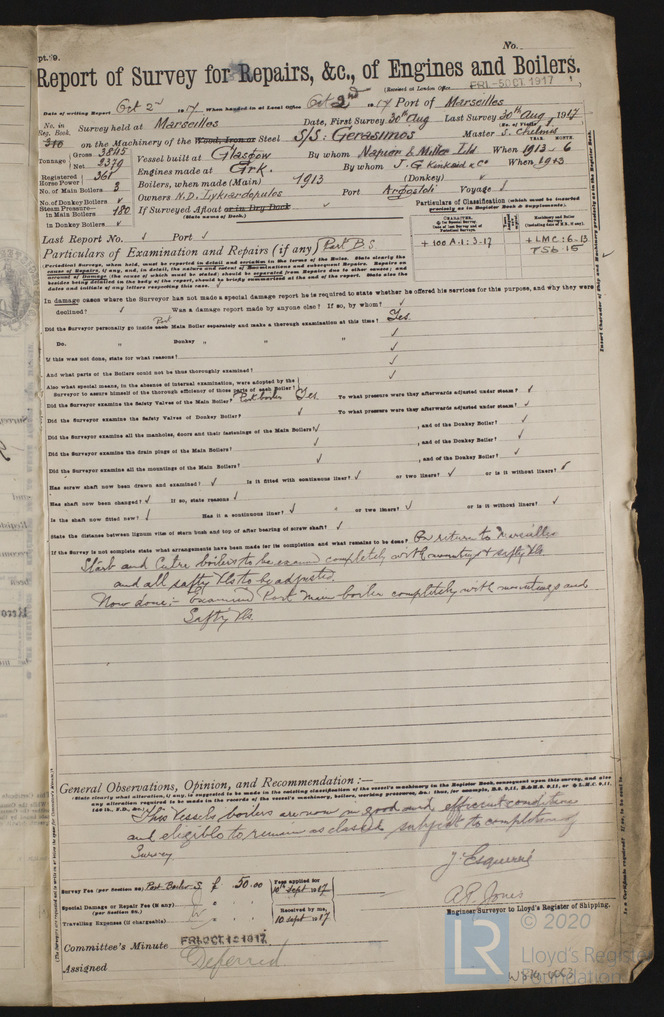 No.
pt. 9.
Report of Survey for Repairs, &c., of Engines and Boilers.
(Received at London Office FRI. 5 OCT 1917)
Date of writing Report Oct 2nd 1917 When handed in at Local Office Oct 2nd 1917 Port of Marseilles
No. in Reg. Book. Survey held at Marseilles Date, First Survey 30th Aug Last Survey 30th Aug 1917
on the Machinery of the Wood, Iron or Steel S/S: Gerasimos Master S. Chelmis
Tonnage Gross 3845 Net 2379
Vessel built at Glasgow By whom Napier & Miller Ld When 1913-6
Registered Horse Power 361
Engines made at Grk. By whom J. G. Kinkaid & Co When 1913
No. of Main Boilers 3
Boilers, when made (Main) 1913 (Donkey) ✓
No. of Donkey Boilers ✓
Owners N.D. Lykiardopulos Port Argostoli Voyage
Steam Pressure— in Main Boilers 180
in Donkey Boilers ✓
If Surveyed Afloat or in Dry Dock ✓
(State name of Dock.)
Particulars of Classification (which must be inserted precisely as in Register Book & Supplements).
+ 100 A.1: 3-17
+ LMC: 6-13
TSb 15
Last Report No. Port
Particulars of Examination and Repairs (if any) Part B S
In damage cases where the Surveyor has not made a special damage report he is required to state whether he offered his services for this purpose, and why they were
declined? Was a damage report made by anyone else? If so, by whom?
Did the Surveyor personally go inside each Port Main Boiler separately and make a thorough examination at this time? Yes.
Do. " Donkey " " "
If this was not done, state for what reasons?
And what parts of the Boilers could not be thus thoroughly examined?
Also what special means, in the absence of internal examination, were adopted by the
Surveyor to assure himself of the thorough efficiency of those parts of each Boiler?
Did the Surveyor examine the Safety Valves of the Main Boiler? Port boiler Yes To what pressure were they afterwards adjusted under steam?
Did the Surveyor examine the Safety Valves of Donkey Boiler? To what pressure were they afterwards adjusted under steam?
Did the Surveyor examine all the manholes, doors and their fastenings of the Main Boilers? , and of the Donkey Boiler?
Did the Surveyor examine the drain plugs of the Main Boilers? , and of the Donkey Boiler?
Did the Surveyor examine all the mountings of the Main Boilers? , and of the Donkey Boiler?
Has screw shaft now been drawn and examined? Is it fitted with continuous liner? or two liners? or is it without liners?
Has shaft now been changed? If so, state reasons
Is the shaft now fitted new? Has it a continuous liner? or two liners? or is it without liner?
State the distance between lignum vitæ of stern bush and top of after bearing of screw shaft?
If the Survey is not complete state what arrangements have been made for its completion and what remains to be done? On return to Marseilles
Starb and Centre boilers to be examd completely with mountgs & safty Vls
and all safty Vls to be adjusted.
Now done:- Examined Port main boiler completely with mountings and
Safty Vls.
General Observations, Opinion, and Recommendation:—
(State clearly what alteration, if any, is suggested to be made in the existing classification of the vessel's machinery in the Register Book, consequent upon this survey, and also
any alteration required to be made in the records of the vessel's machinery, boilers, working pressures, &c.;
This Vessels boilers are now in good and efficient condition
and eligible to remain as classed subject to completion of
Survey
J. Esquerré
A.P. Jones
Engineer Surveyor to Lloyd's Register of Shipping.
Survey Fee (per Section 29) Port Boiler S £ 50.00
Fees applied for 10th Sept 1917
Special Damage or Repair Fee (if any) (per Section 29.)
Received by me, 10 Sept 1917
Travelling Expenses (if chargeable)
Committee's Minute FRI. OCT 12 1917
Assigned Deferred
© 2020
LR
Lloyd's Register
Foundation